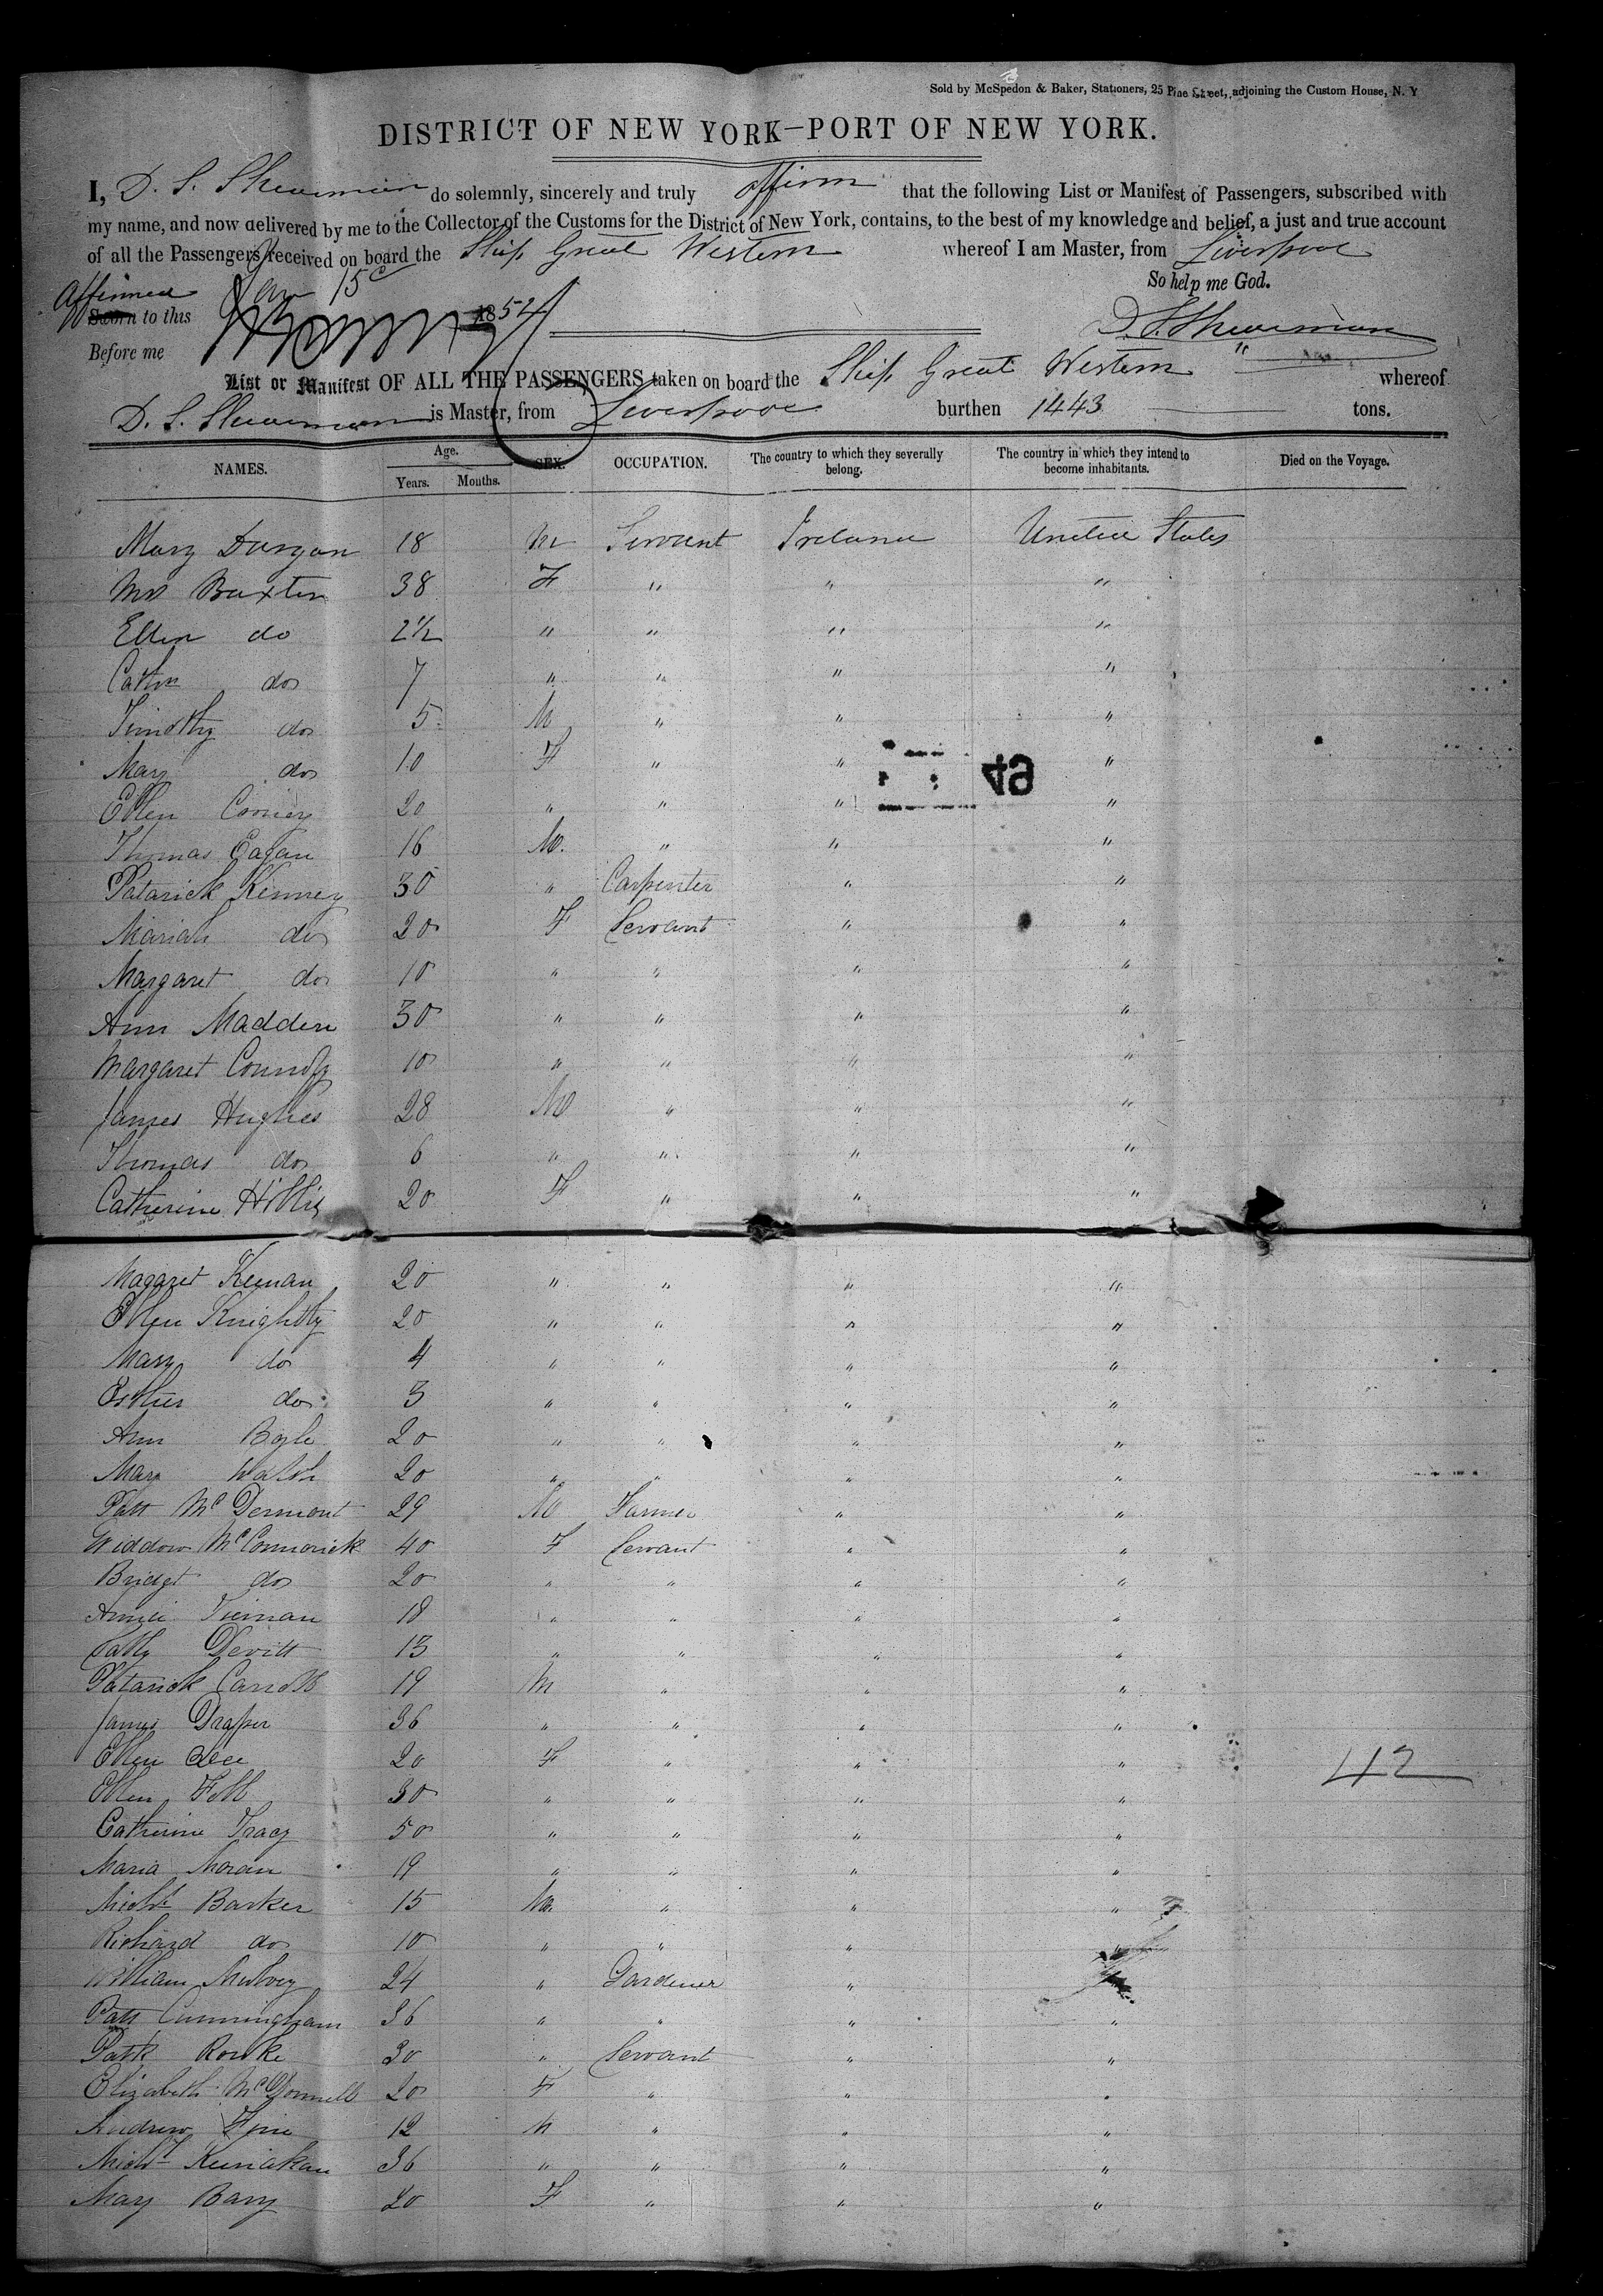 Sold by McSpedon & Baker, Stationers, 25 Pine Street, adjoining the Custom House, N. Y
DISTRICT OF NEW YORK—PORT OF NEW YORK.
I, D. S. Shearman do solemnly, sincerely and truly affirm that the following List or Manifest of Passengers, subscribed with
my name, and now delivered by me to the Collector of the Customs for the District of New York, contains, to the best of my knowledge and belief, a just and true account
of all the Passengers received on board the Ship Great Western whereof I am Master, from Liverpool
So help me God.
Affirmed Jan 15
Sworn to this 1852
D. S. Shearman
Before me
List or Manifest OF ALL THE PASSENGERS taken on board the Ship Great Western whereof
D. S. Shearman is Master, from Liverpool burthen 1443 tons.
NAMES. Age. Years. Months. SEX. OCCUPATION. The country to which they severally belong. The country in which they intend to become inhabitants. Died on the Voyage.
Mary Durgan 18 M Servant Ireland United States
Mrs Baxter 38 F " " "
Ellen do 2½ " " " "
Cathn do 7 " " " "
Timothy do 5 M " " "
Mary do 10 F " " "
49
Ellen Cooney 20 " " " "
Thomas Eagan 16 M. " " "
Patarick Kenney 30 " Carpenter " "
Mariah do 20 F Servant " "
Margaret do 10 " " " "
Ann Madden 30 " " " "
Margaret Connolly 10 " " " "
James Hughes 28 M " " "
Thomas do 6 " " " "
Catherine 20 F " " "
Magaret Keenan 20 " " " "
Ellen Knightly 20 " " " "
Mary do 4 " " " "
Esther do 3 " " " "
Ann Boyle 20 " " " "
Mary Walsh 20 " " " "
Patt McDermont 29 M Farmer " "
Widdow McCommrick 40 F Servant " "
Bridget do 20 " " " "
Annie Tiernan 18 " " " "
Cathy Devitt 13 " " " "
Patarick Carroll 19 M " " "
James Draper 36 " " " "
Ellen 20 F " " "
42
Ellen Fell 30 " " " "
Catherine Tracy 50 " " " "
Maria Moran 19 " " " "
Michl Barker 15 M. " " "
Richard do 10 " " " "
William Mulvey 24 " Gardener "
Patt Cunningham 36 " " " "
Patk Rourke 30 " Servant " "
Elizabeth McDonnell 20 F " " "
Andrew 12 M " " "
Michl 36 " " " "
Mary Barry 20 F " " "